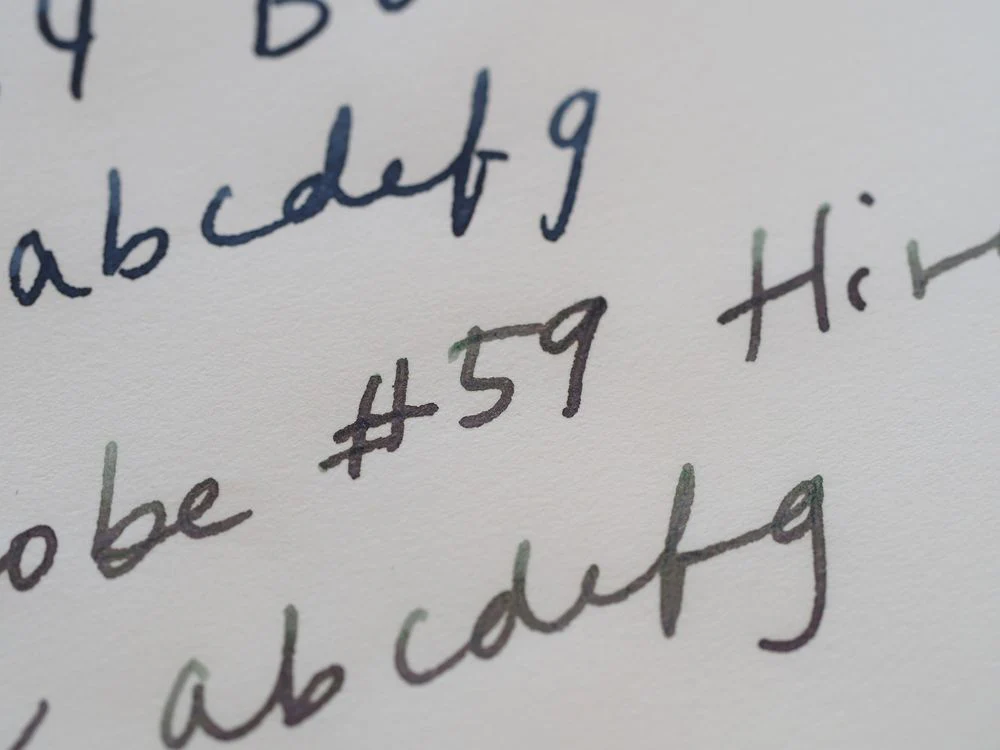 abcdefg
obe #59 Hin
abcdefg